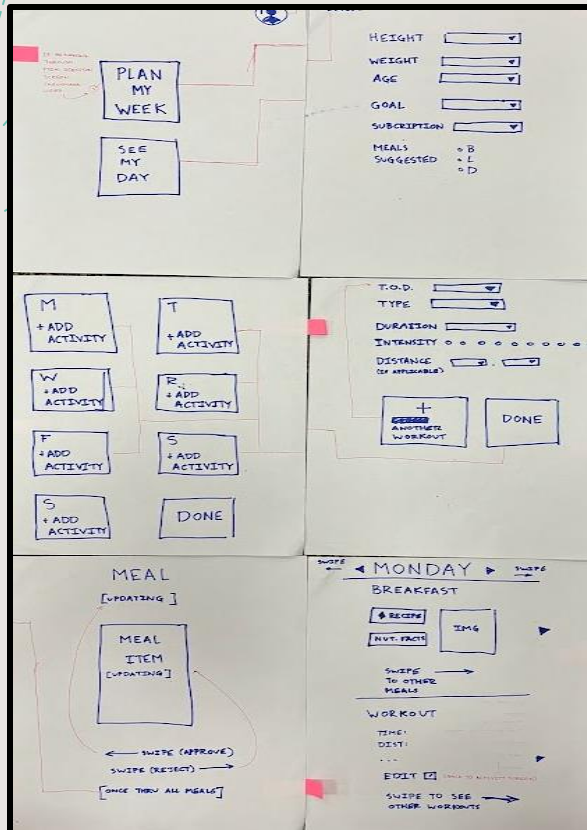 PLAN
MY
WEEK
SEE
MY
DAY
HEIGHT
WEIGHT
AGE
GOAL
SUBCRIPTION
MEALS
SUGGESTED
B
L
D
M
+ ADD
ACTIVITY
T
+ ADD
ACTIVITY
W
+ ADD
ACTIVITY
R
+ ADD
ACTIVITY
F
+ ADD
ACTIVITY
S
+ ADD
ACTIVITY
S
+ ADD
ACTIVITY
DONE
T.O.D.
TYPE
DURATION
INTENSITY
DISTANCE
(IF APPLICABLE)
+
ANOTHER
WORKOUT
DONE
MEAL
[UPDATING]
MEAL
ITEM
[UPDATING]
SWIPE (APPROVE)
SWIPE (REJECT)
[ONCE THRU ALL MEALS]
SWIPE MONDAY SWIPE
BREAKFAST
RECIPE
NUT. FACTS
IMG
SWIPE
TO OTHER
MEALS
WORKOUT
TIME:
DIST:
...
EDIT
SWIPE TO SEE
OTHER WORKOUTS